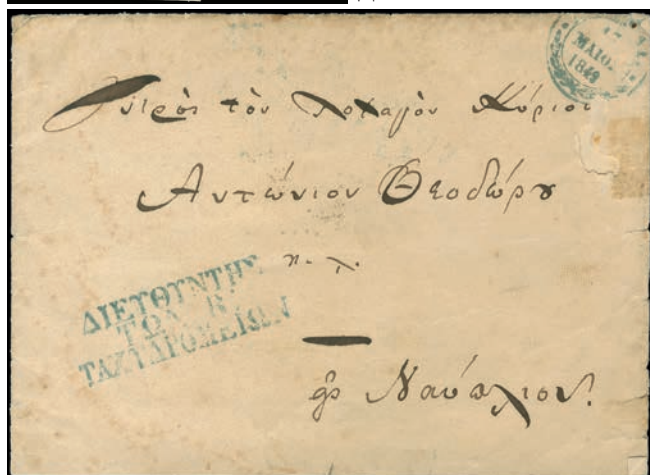 ΜΑΙΟΣ
1849
πρὸς τὸν Λοχαγὸν Κύριον
Ἀντώνιον Θεοδώρου
κ. λ.
ΔΙΕΥΘΥΝΤΗΣ
ΤΩΝ Β.
ΤΑΧΥΔΡΟΜΕΙΩΝ
εἰς Ναύπλιον.